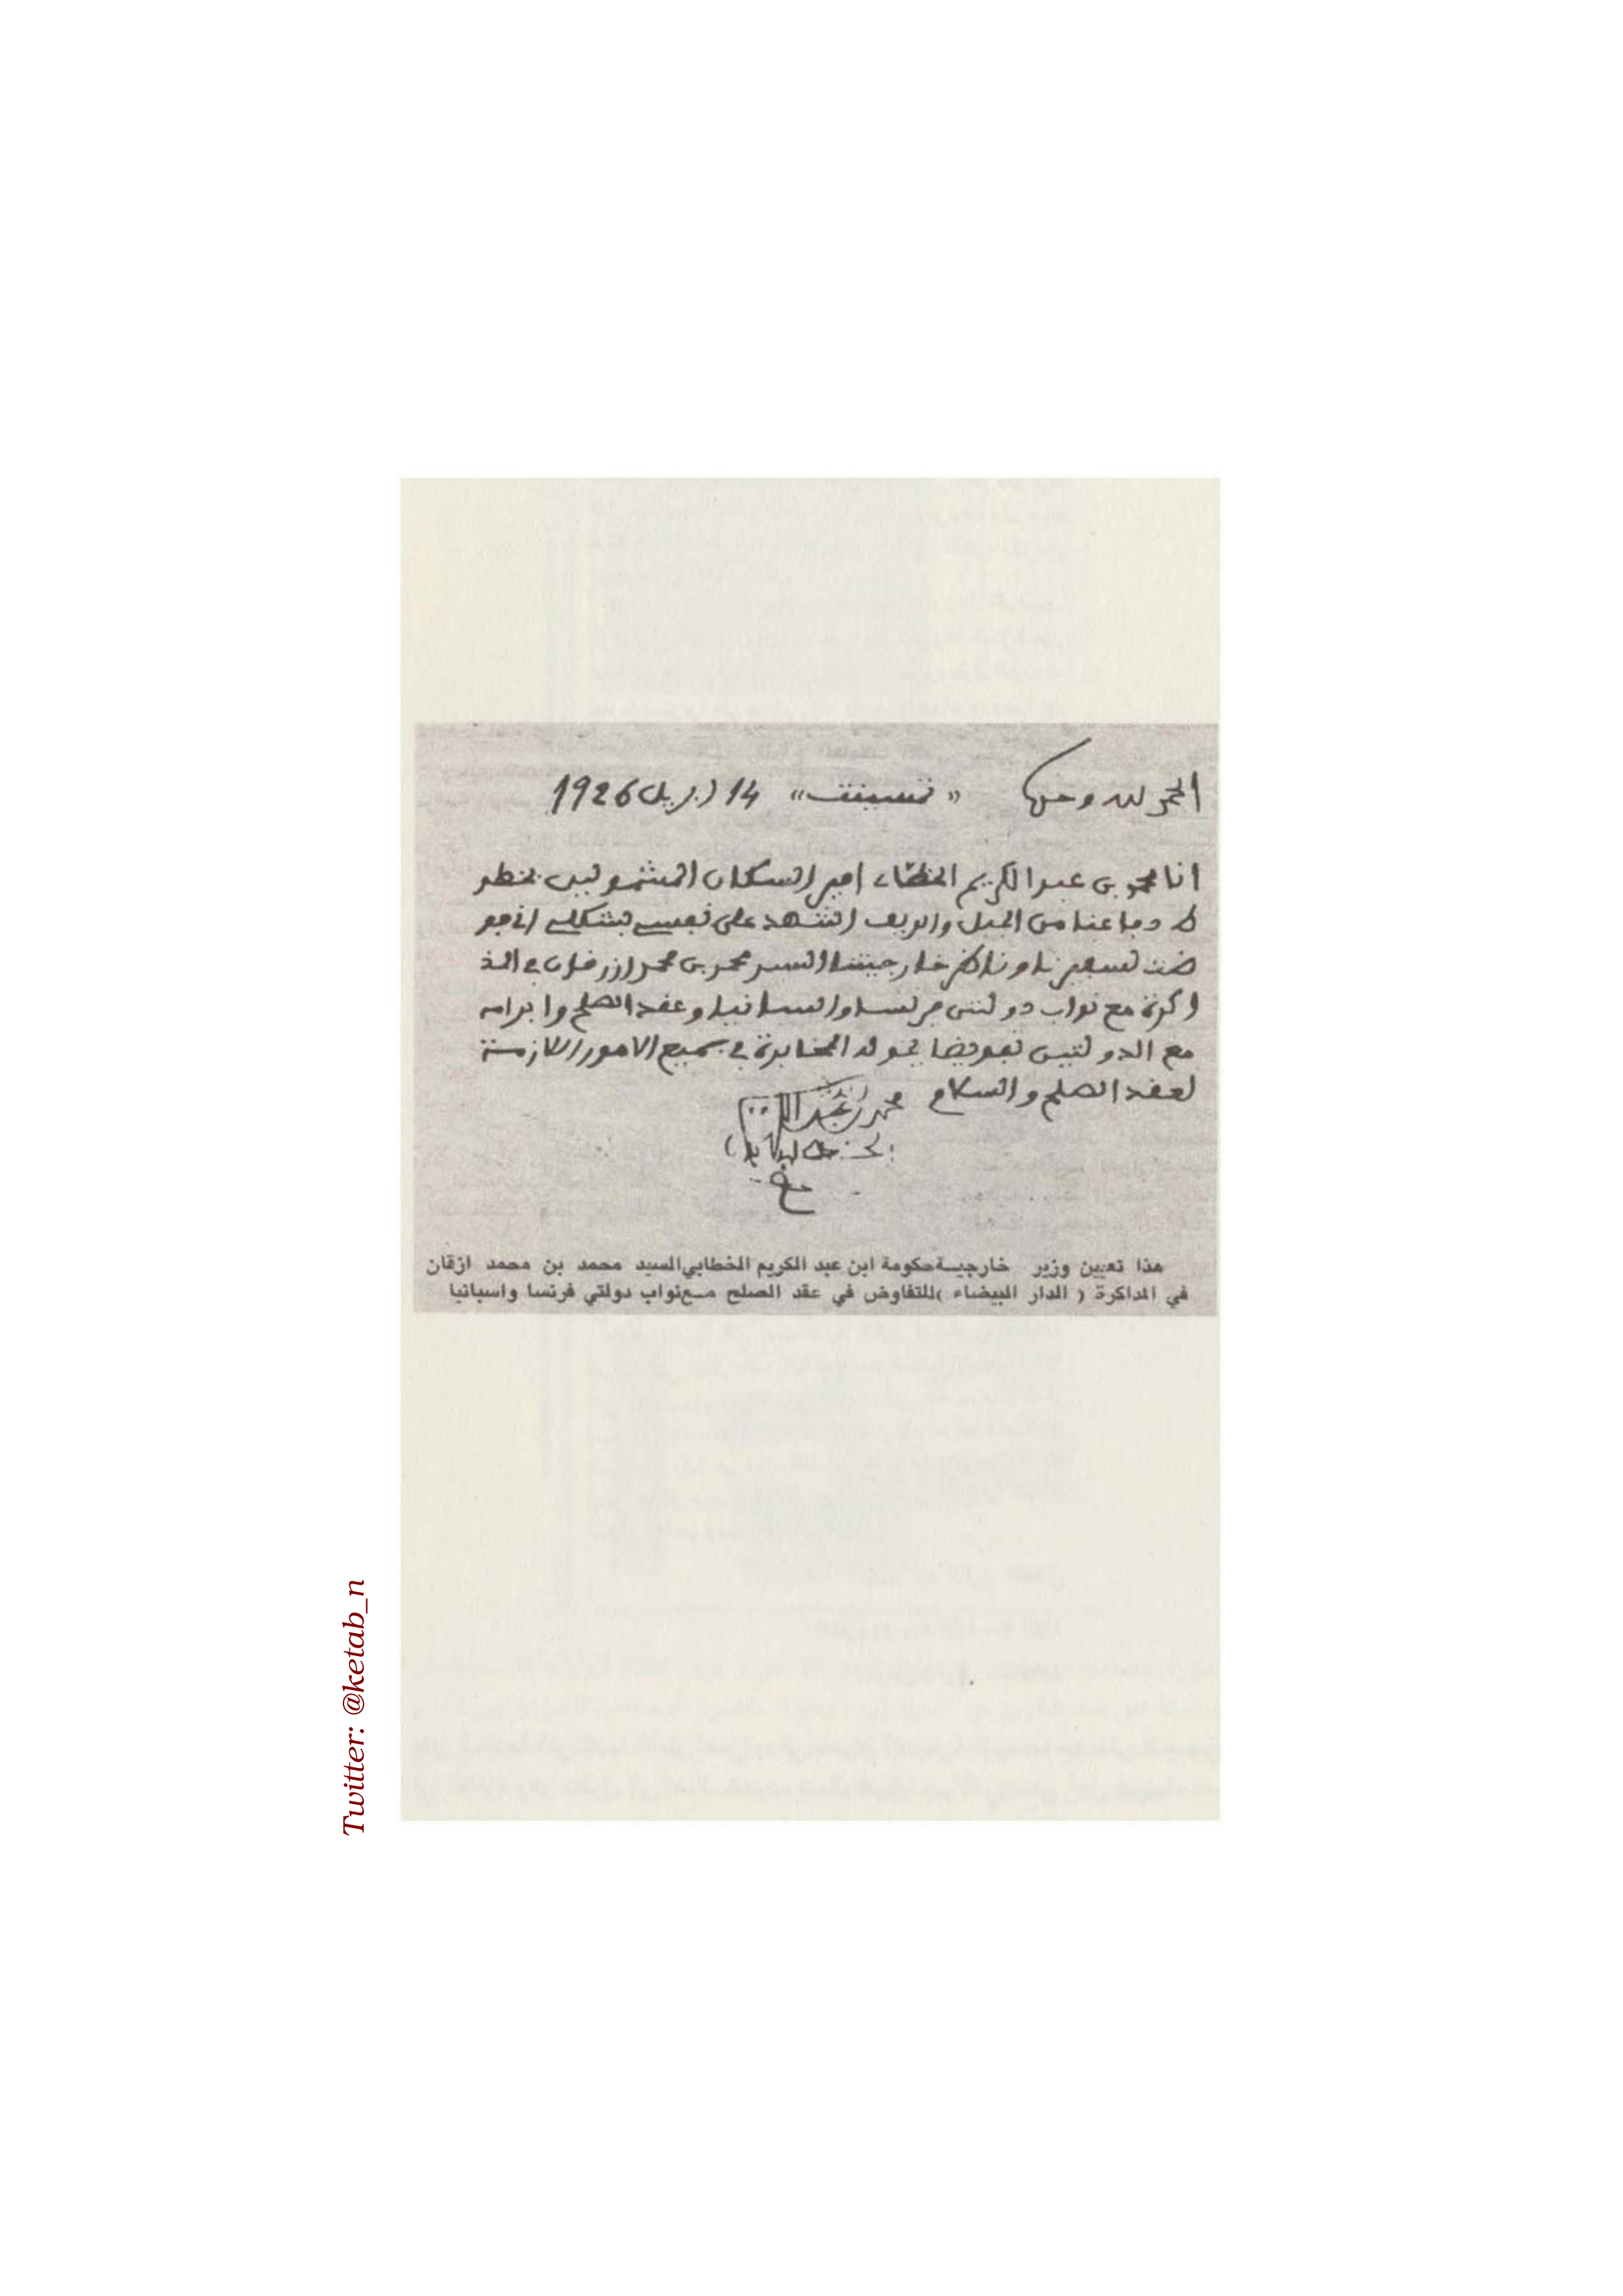 الحمد لله وحده « تمسينت » 14 ابريل 1926
انا محمد بن عبد الكريم الخطابي امير السكان المشمولين بخطو
ط دفاعنا من الجبل والريف اشهد على نفسي بشكلي اني فو
ضت لسفيرنا وناظر خارجيتنا السيد محمد بن محمد ازرقان في المذ
اكرة مع نواب دولتي فرنسا واسبانيا وعقد الصلح وابرامه
مع الدولتين تفويضا يخوله المخابرة في جميع الامور اللازمة
لعقد الصلح والسلام محمد بن عبد الكريم
الخطابي
هذا تعيين وزير خارجية حكومة ابن عبد الكريم الخطابي السيد محمد بن محمد ازقان
في المذاكرة ( الدار البيضاء ) للتفاوض في عقد الصلح مع نواب دولتي فرنسا واسبانيا
Twitter: @ketab_n